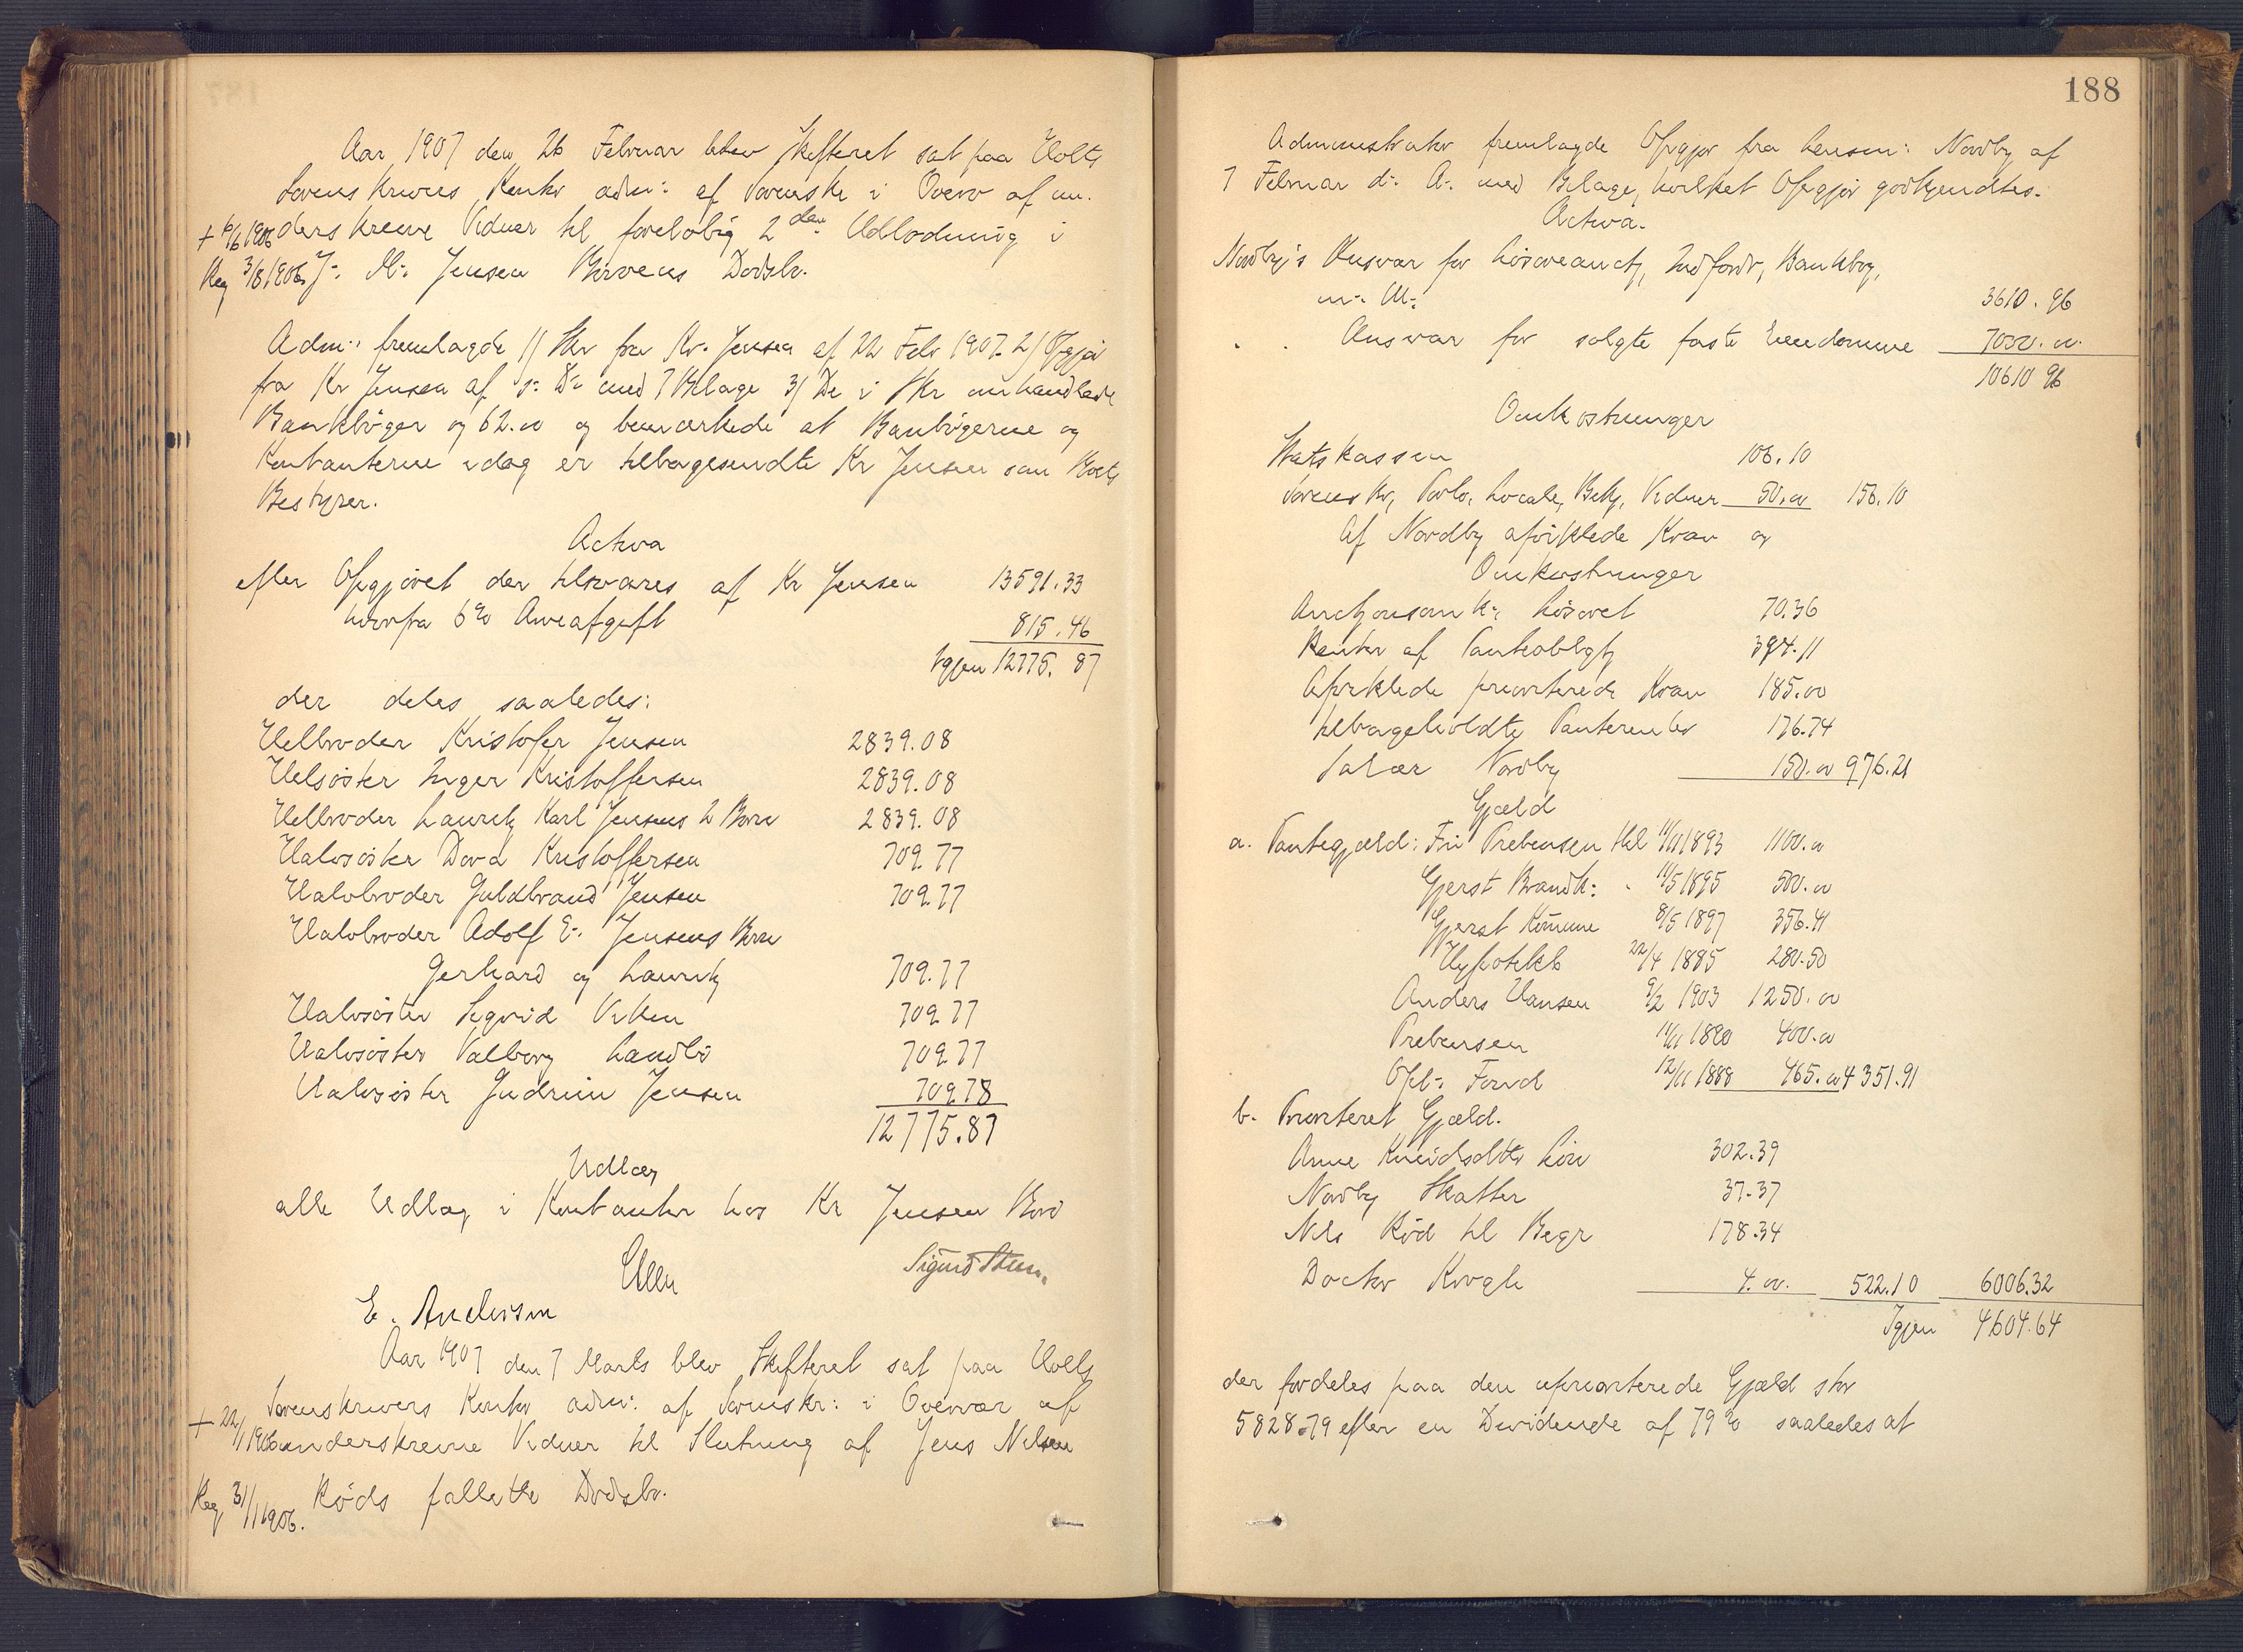 Aar 1907 den 26 Februar blev Skifteret sat paa Holts
Sorenskrivers Kontor adm: af Sorenskr i Overv af un-
+ 6/6 1906 derskrevne Vidner til foreløbig 2den Udlodning i
Reg 3/8 1906 J. M. Jensen Dødsbo.
Adm: fremlagde 1) Skr fra Kr. Jensen af 22 Febr 1907. 2) Opgjør
fra Kr Jensen af s: D: med 7 Bilage 3) De i Skr omhandlede
Bankbøger og 62.00 og bemærkede at Banbøgerne og
Kontanterne idag er tilbagesendte Kr Jensen som Boets
Bestyrer.
Activa
efter Opgjøret der tilsvares af Kr Jensen 13591.33
hvorfra 6% Arveafgift 815.46
Igjen 12775.87
der deles saaledes:
Helbroder Kristofer Jensen 2839.08
Helsøster Inger Kristoffersen 2839.08
Helbroder Lauritz Karl Jensens 2 Børn 2839.08
Halvsøster Dora Kristoffersen 709.77
Halvbroder Guldbrand Jensen 709.77
Halvbroder Adolf E. Jensens Børn
Gerhard og Lauritz 709.77
Halvsøster Sigrid Viken 709.77
Halvsøster Valborg Landbø 709.77
Halvsøster Gudrun Jensen 709.78
12775.87
Udlæg
alle Udlæg i Kontanter hos Kr Jensen
Sigurd
E. Andersen
Aar 1907 den 7 Marts blev Skifteret sat paa Holts
Sorenskrivers Kontor adm: af Sorenskr: i Overvær af
+ 22/1 1906 underskrevne Vidner til Slutning af Jens Nilsen
Reg 31/1 1906. Røds fallitte Dødsbo.
188
Administrator fremlagde Opgjør fra Lensm: Nordby af
7 Februar d: A: med Bilage, hvilket Opgjør godkjendtes.
Activa.
Nordby's Ansvar for Løsøreauct, Indfordr, Bankbog,
m: M: 3610.96
" " Ansvar for solgte faste Eiendomme 7000.00
10610 96
Omkostninger
Statskassen 106.10
Sorenskr, Porto, Locale, Bekj, Vidner 50.00 156.10
Af Nordby afviklede Krav og
Omkostninger
Auctionsomk: Løsøret 70.36
Renter af Panteobligt 394.11
Afviklede prioriterede Krav 185.00
tilbageholdte Panterenter 176.74
Salær Nordby 150.00 976.21
Gjæld
a. Pantegjæld: Fru Prebensen tkl 11/11 1893 1100.00
Gjerst Brandk: " 11/5 1895 500.00
Gjerst Komune 8/5 1897 356.41
Hypothkb 22/4 1885 280.50
Anders Hansen 9/2 1903 1250.00
Prebensen 11/11 1880 400.00
Opl: Fond 12/11 1888 465.00 4351.91
b. Prioriteret Gjæld.
Anne Løn 302.39
Nordby Skatter 37.37
Nils Rød til Begr 178.34
Doctor Krogh 4.00. 522.10 6006.32
Igjen 4604.64
der fordeles paa den uprioriterede Gjæld stor
5828.79 efter en Dividende af 79% saaledes at